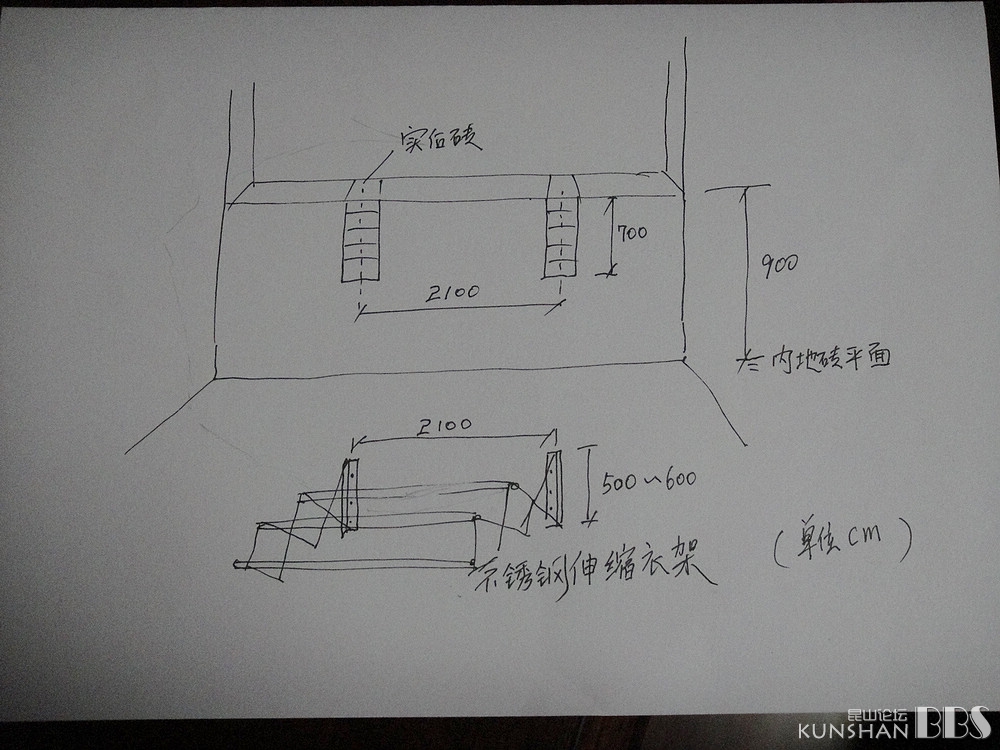 实伍砖
700
900
2100
内地砖平面
2100
500~600
(单位cm)
不锈钢伸缩衣架
昆山论坛
KUNSHAN BBS